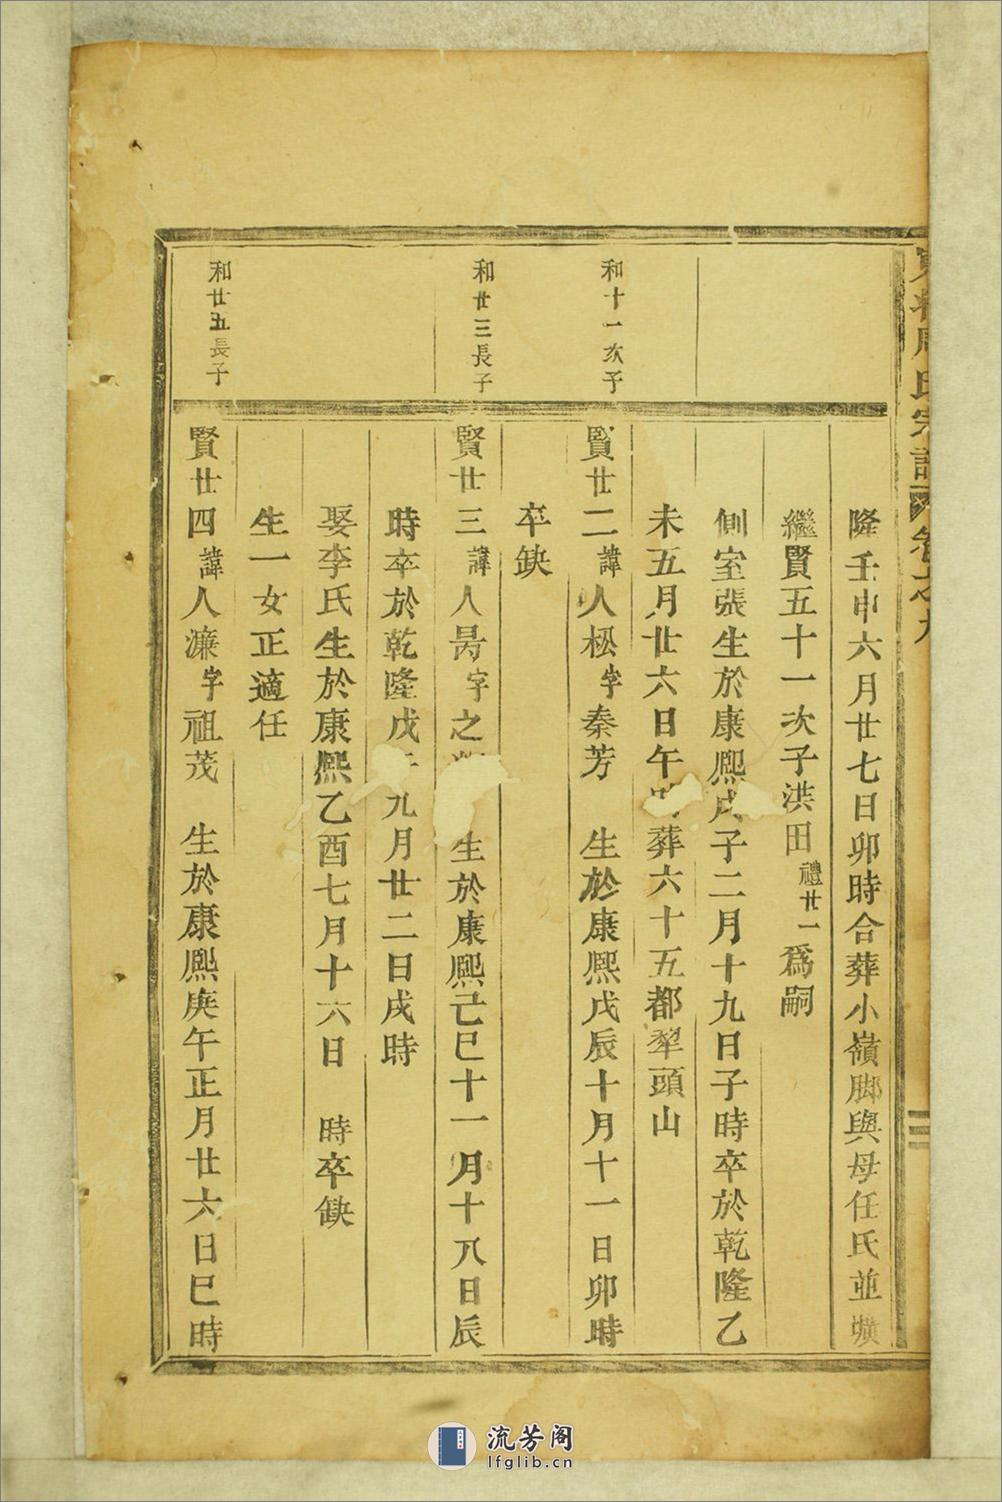 周氏宗譜 卷之九
隆壬申六月廿七日卯時合葬小嶺脚與母任氏並壙
繼賢五十一次子洪田禮廿一爲嗣
側室張生於康熙戊子二月十九日子時卒於乾隆乙
未五月廿六日午時葬六十五都犂頭山
和十一次子
賢廿二諱人松字秦芳 生於康熙戊辰十月十一日卯時
卒缺
和廿三長子
賢廿三諱人昺字之 生於康熙己巳十一月十八日辰
時卒於乾隆戊午九月廿二日戌時
娶李氏生於康熙乙酉七月十六日 時卒缺
生一女正適任
和廿五長子
賢廿四諱人濂字祖茂 生於康熙庚午正月廿六日巳時
流芳阁
lfglib.cn